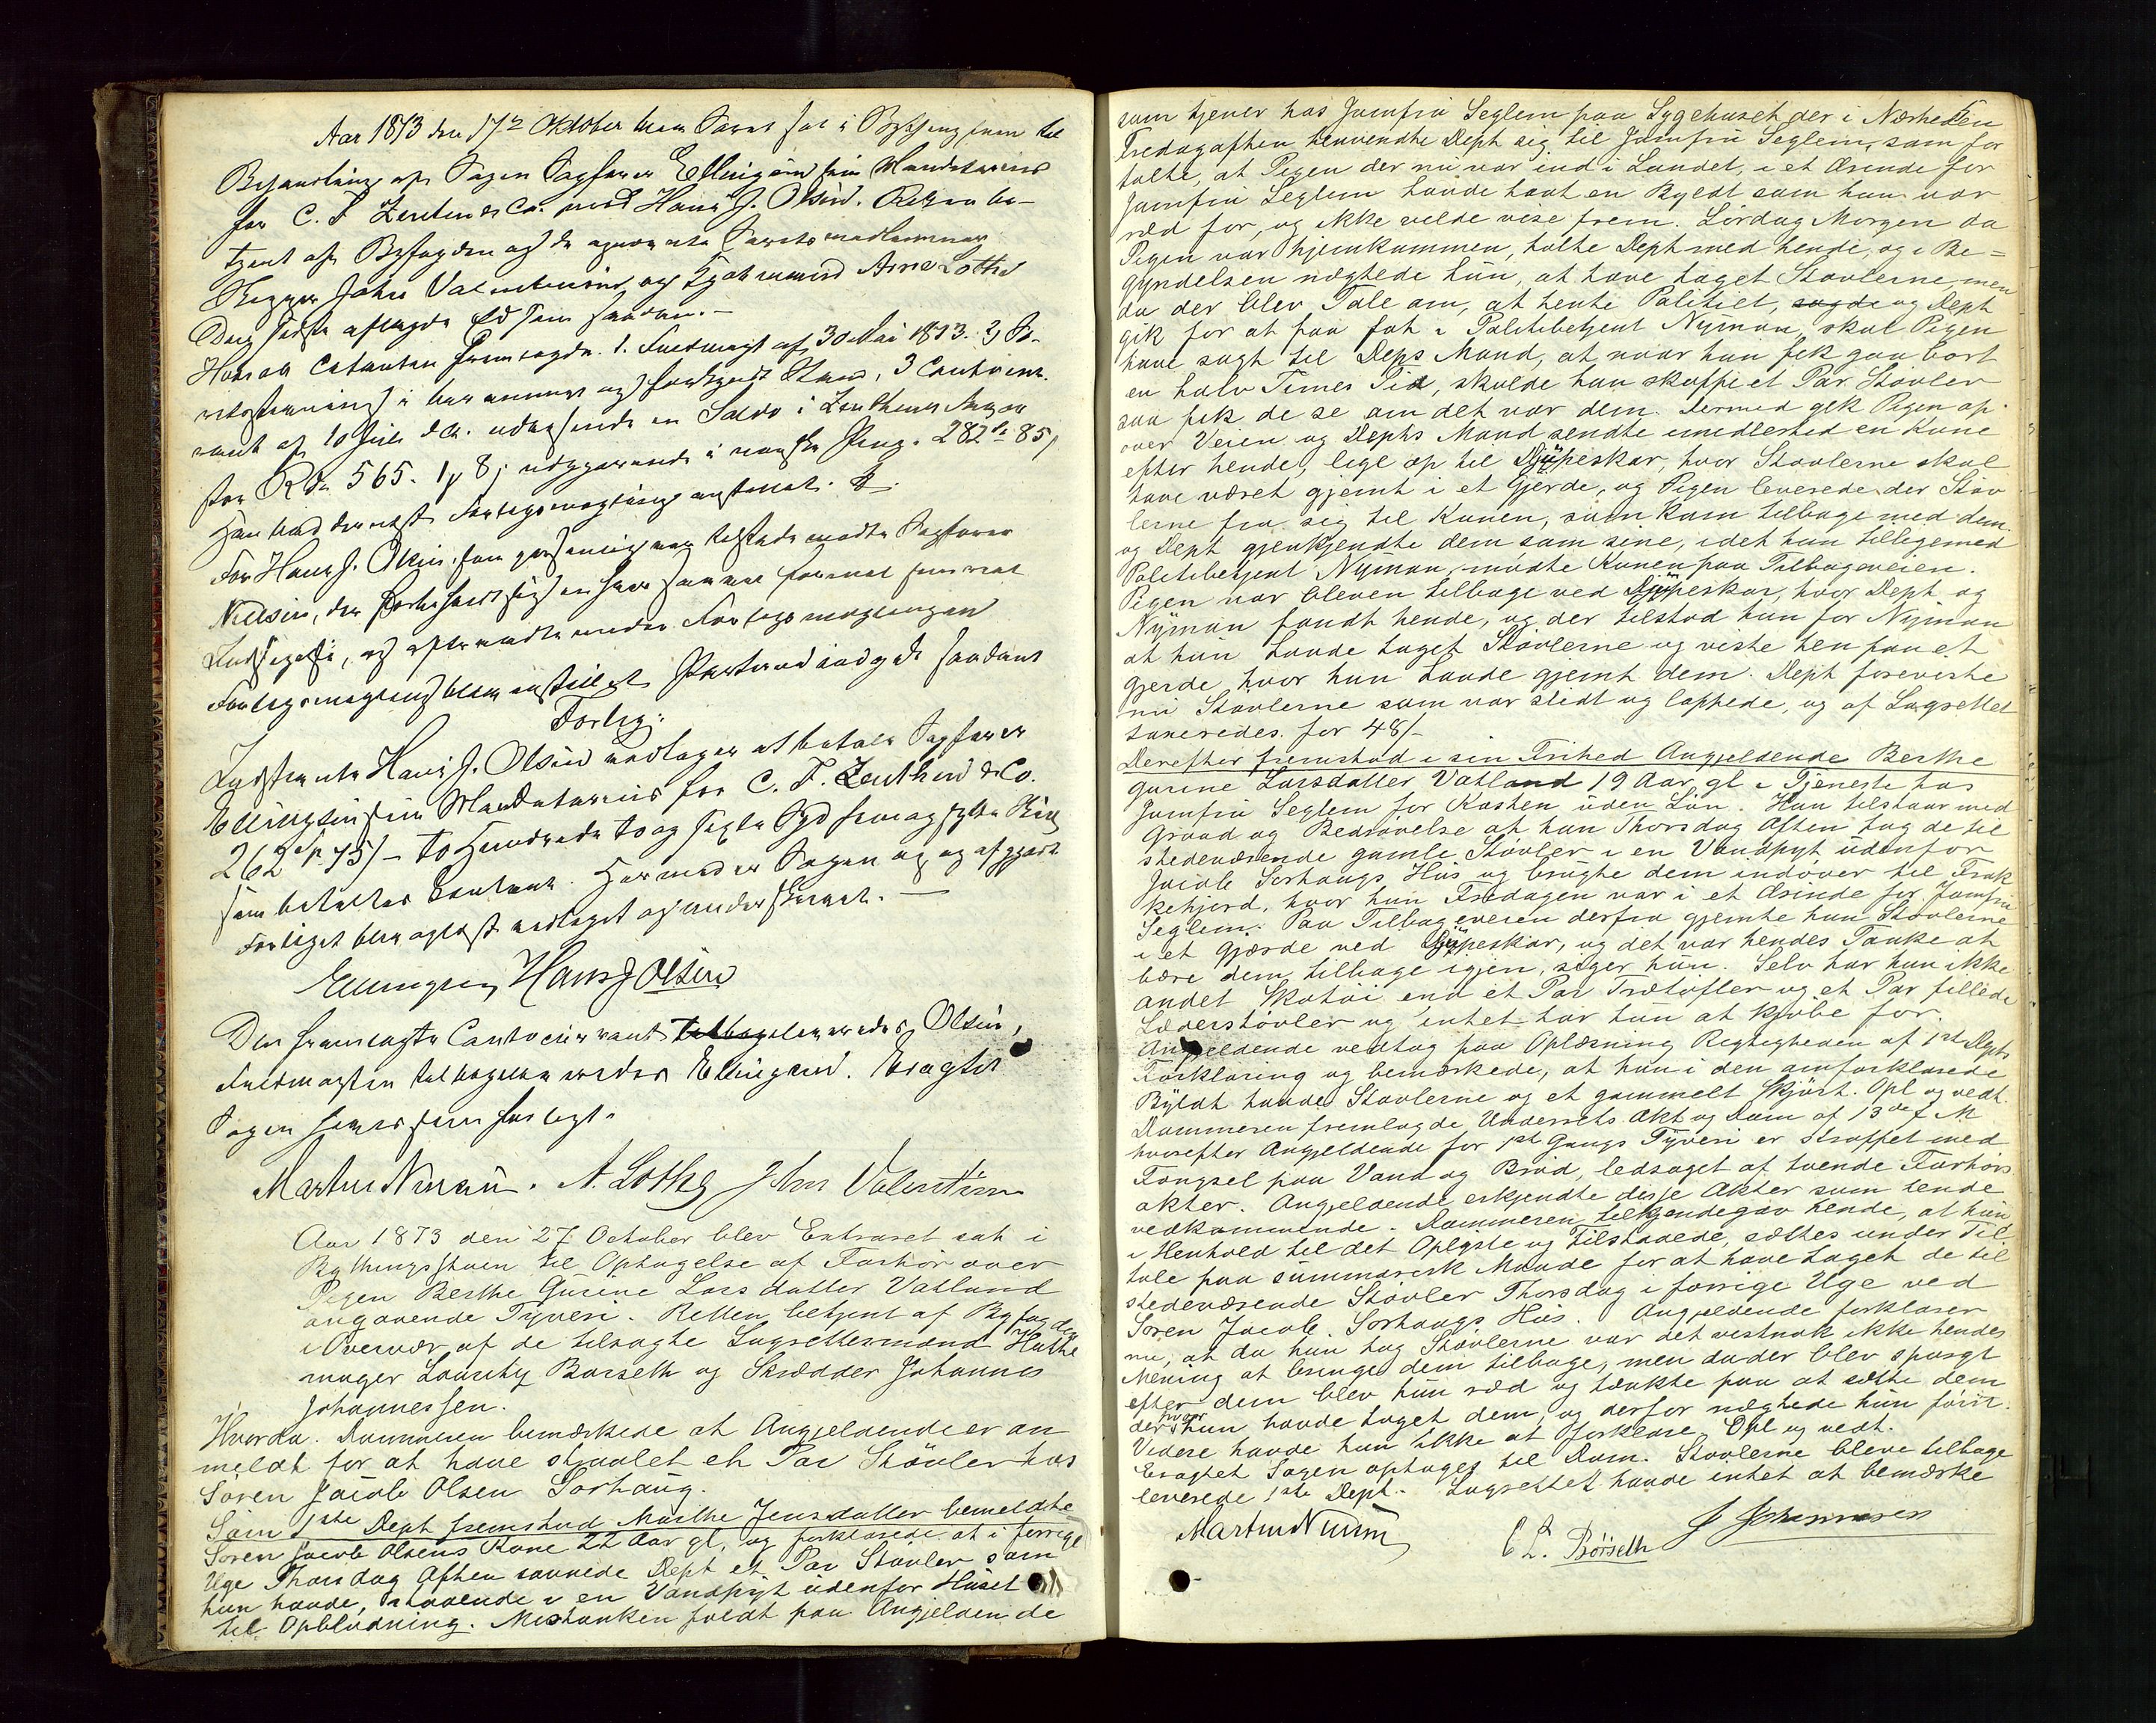 Aar 1873 den 17de Oktober blev Extraret sat i Bythingstuen til
Behandling af Sagen Sagfører Ellingsen som Mandatarius
for C. F. Zeuthen & Co. mod Hans J. Olsen. Retten be-
tjent af Byfogden og de opnævnte Laugrettesmedlemmer
Skipper John Valentinsen og Kjøbmand Arne Lothe
Den sidste aflagde Ed som saadan.–
Hvorda Citanten fremlagde 1. Fuldmagt af 30 Mai 1873. 2,
3 Contocou-
rant af 10 Juli d. A. udvisende en Saldo i Zeuthens Favør
stor Rdr 565. 1 # 8 s udgjørende i norske Penge 282 Sp 85 s
Han bad dernæst Forligsmægling anstillet.
For Hans J. Olsen som personlig var tilstede mødte Sagfører
Nielsen, der forbeholdt sig
Indsigelse, og efter endte under Forligsmæglingen
Forligsmægling blev anstillet Parterne indgik saadant
Forlig:
Indstævnte Hans J. Olsen vedtager at betale Sagfører
Ellingsen som Mandatarius for C. F. Zeuthen & Co.
262 Sp. 75/– To Hundrede to og sexti Spd fem og sytti Skill
som betaltes contant. Hermed er Sagen og afgjort
Forliget blev oplæst vedtaget og underskrevet.–
Ellingsen Hans J Olsen
Den fremlagte Contocourant tilbageleveredes Olsen,
Fuldmagten tilbageleveredes Ellingsen. Eragtet
Sagen hæves som forligt.
Martus Nissen. A. Lothe John Valentinsen
Aar 1873 den 27 October blev Extraret sat i
Bythingsstuen til Optagelse af Forhør over
Pigen Berthe Gurine Larsdatter Vatland
angaaende Tyveri. Retten betjent af Byfogden
i Overvær af de tilsagte Lagrettesmænd Hatte
mager Lauritz Børseth og Skrædder Johannes
Johannessen.
Hvorda. Dommeren bemærkede at Angjeldende er an
meldt for at have stjaalet et Par Støvler hos
Søren Jacob Olsen Sørhaug.
Som 1ste Dept fremstod Marthe Jensdatter bemeldte
Søren Jacob Olsens Kone 22 Aar gl, og forklarede at i forrige
Uge Thorsdag Aften savnede Dept et Par Støvler som
hun havde, staaende i en Vandpyt udenfor Huset
til Opblødning. Mistanken faldt paa Angjeldende
som tjener hos Jomfru Seglem paa Sygehuset der i Nærheden
Fredagaften henvendte Dept sig til Jomfru Seglem, som for
talte, at Pigen der nu var ind i Landet, i et Ærende for
Jomfru Seglem havde havt en Byldt som hun var
ræd for, og ikke vilde vise frem. Lørdag Morgen da
Pigen var hjemkommen, talte Dept med hende, og i Be=
gyndelsen nægtede hun, at have taget Støvlerne, men
da der blev Tale om, at hente Politiet, sagde og Dept
gik for at faa fat i Politibetjent Nyman, skal Pigen
have sagt til Depts Mand, at naar hun fik gaa bort
en halv Times Tid, skulde hun skaffe et Par Støvler
saa fik de se om det var dem. Dermed gik Pigen op-
over Veien og Depts Mand sendte imedlertid en Kone
efter hende, lige op til Djupeskar, hvor Støvlerne skal
have været gjemt i et Gjerde, og Pigen leverede der Støv
lerne fra sig til Konen, som kom tilbage med dem
og Dept gjenkjendte dem som sine, idet hun tilligemed
Politibetjent Nyman, mødte Konen paa Tilbageveien.
Pigen var bleven tilbage ved Djupeskar, hvor Dept og
Nyman fandt hende, og der tilstod hun for Nyman
at hun havde taget Støvlerne og viste hen paa et
Gjerde, hvor hun havde gjemt dem. Dept foreviste
nu Støvlerne som var slidt og lappede, og af Lagrettet
taxeredes for 48/–
Derefter fremstod i sin Frihed Angjeldende Berthe
Gurine Larsdatter Vatland 19 Aar gl i Tjeneste hos
Jomfru Seglem for Kosten uden Løn. Hun tilstaar med
Graad og Bedrøvelse at hun Thorsdag Aften tog de til
stedeværende gamle Støvler i en Vandpyt udenfor
Jacob Sørhaugs Hus og brugte dem indover til Frak
kefjord, hvor hun Fredagen var i et Ærinde for Jomfru
Seglem. Paa Tilbageveien derfra gjemte hun Støvlerne
i et Gjærde ved Djupeskar, og det var hendes Tanke at
bære dem tilbage igjen, siger hun. Selv har hun ikke
andet Skotøi end et Par Trætøfler og et Par fillede
Læderstøvler og intet har hun at kjøbe for.
Angjeldende vedtog paa Oplæsning Rigtigheden af 1ste Depts
Forklaring og bemærkede, at hun i den omforklarede
Byldt havde Støvlerne og et gammelt Skjørt. Opl og vedt.
Dommeren fremlagde Underrets Akt og Dom af 3die f. M
hvorefter Angjeldende for 1ste Gangs Tyveri er straffet med
Fængsel paa Vand og Brød, ledsaget af tvende Forhørs
akter. Angjeldende erkjendte disse Akter som hende
vedkommende. Dommeren tilkjendegav hende, at hun
i Henhold til det Oplyste og Tilstaaede, sættes under Til
tale paa summarisk Maade for at have taget de til
stedeværende Støvler Thorsdag i forrige Uge ved
Søren Jacob. Sørhaugs Hus. Angjeldende forklarer
nu, at da hun tog Støvlerne var det vistnok ikke hendes
Mening at bringe dem tilbage, men da der blev spurgt
efter dem blev hun ræd og tænkte paa at sætte dem
der hvor hun havde taget dem, og derfor nægtede hun først.
Videre havde hun ikke at forklare. Opl og vedt.
Eragtet Sagen optages til Dom. Støvlerne bleve tilbage
leverede 1ste Dept.– Lagrettet havde intet at bemærke
Martus Nissen C L. Børseth J Johannessen